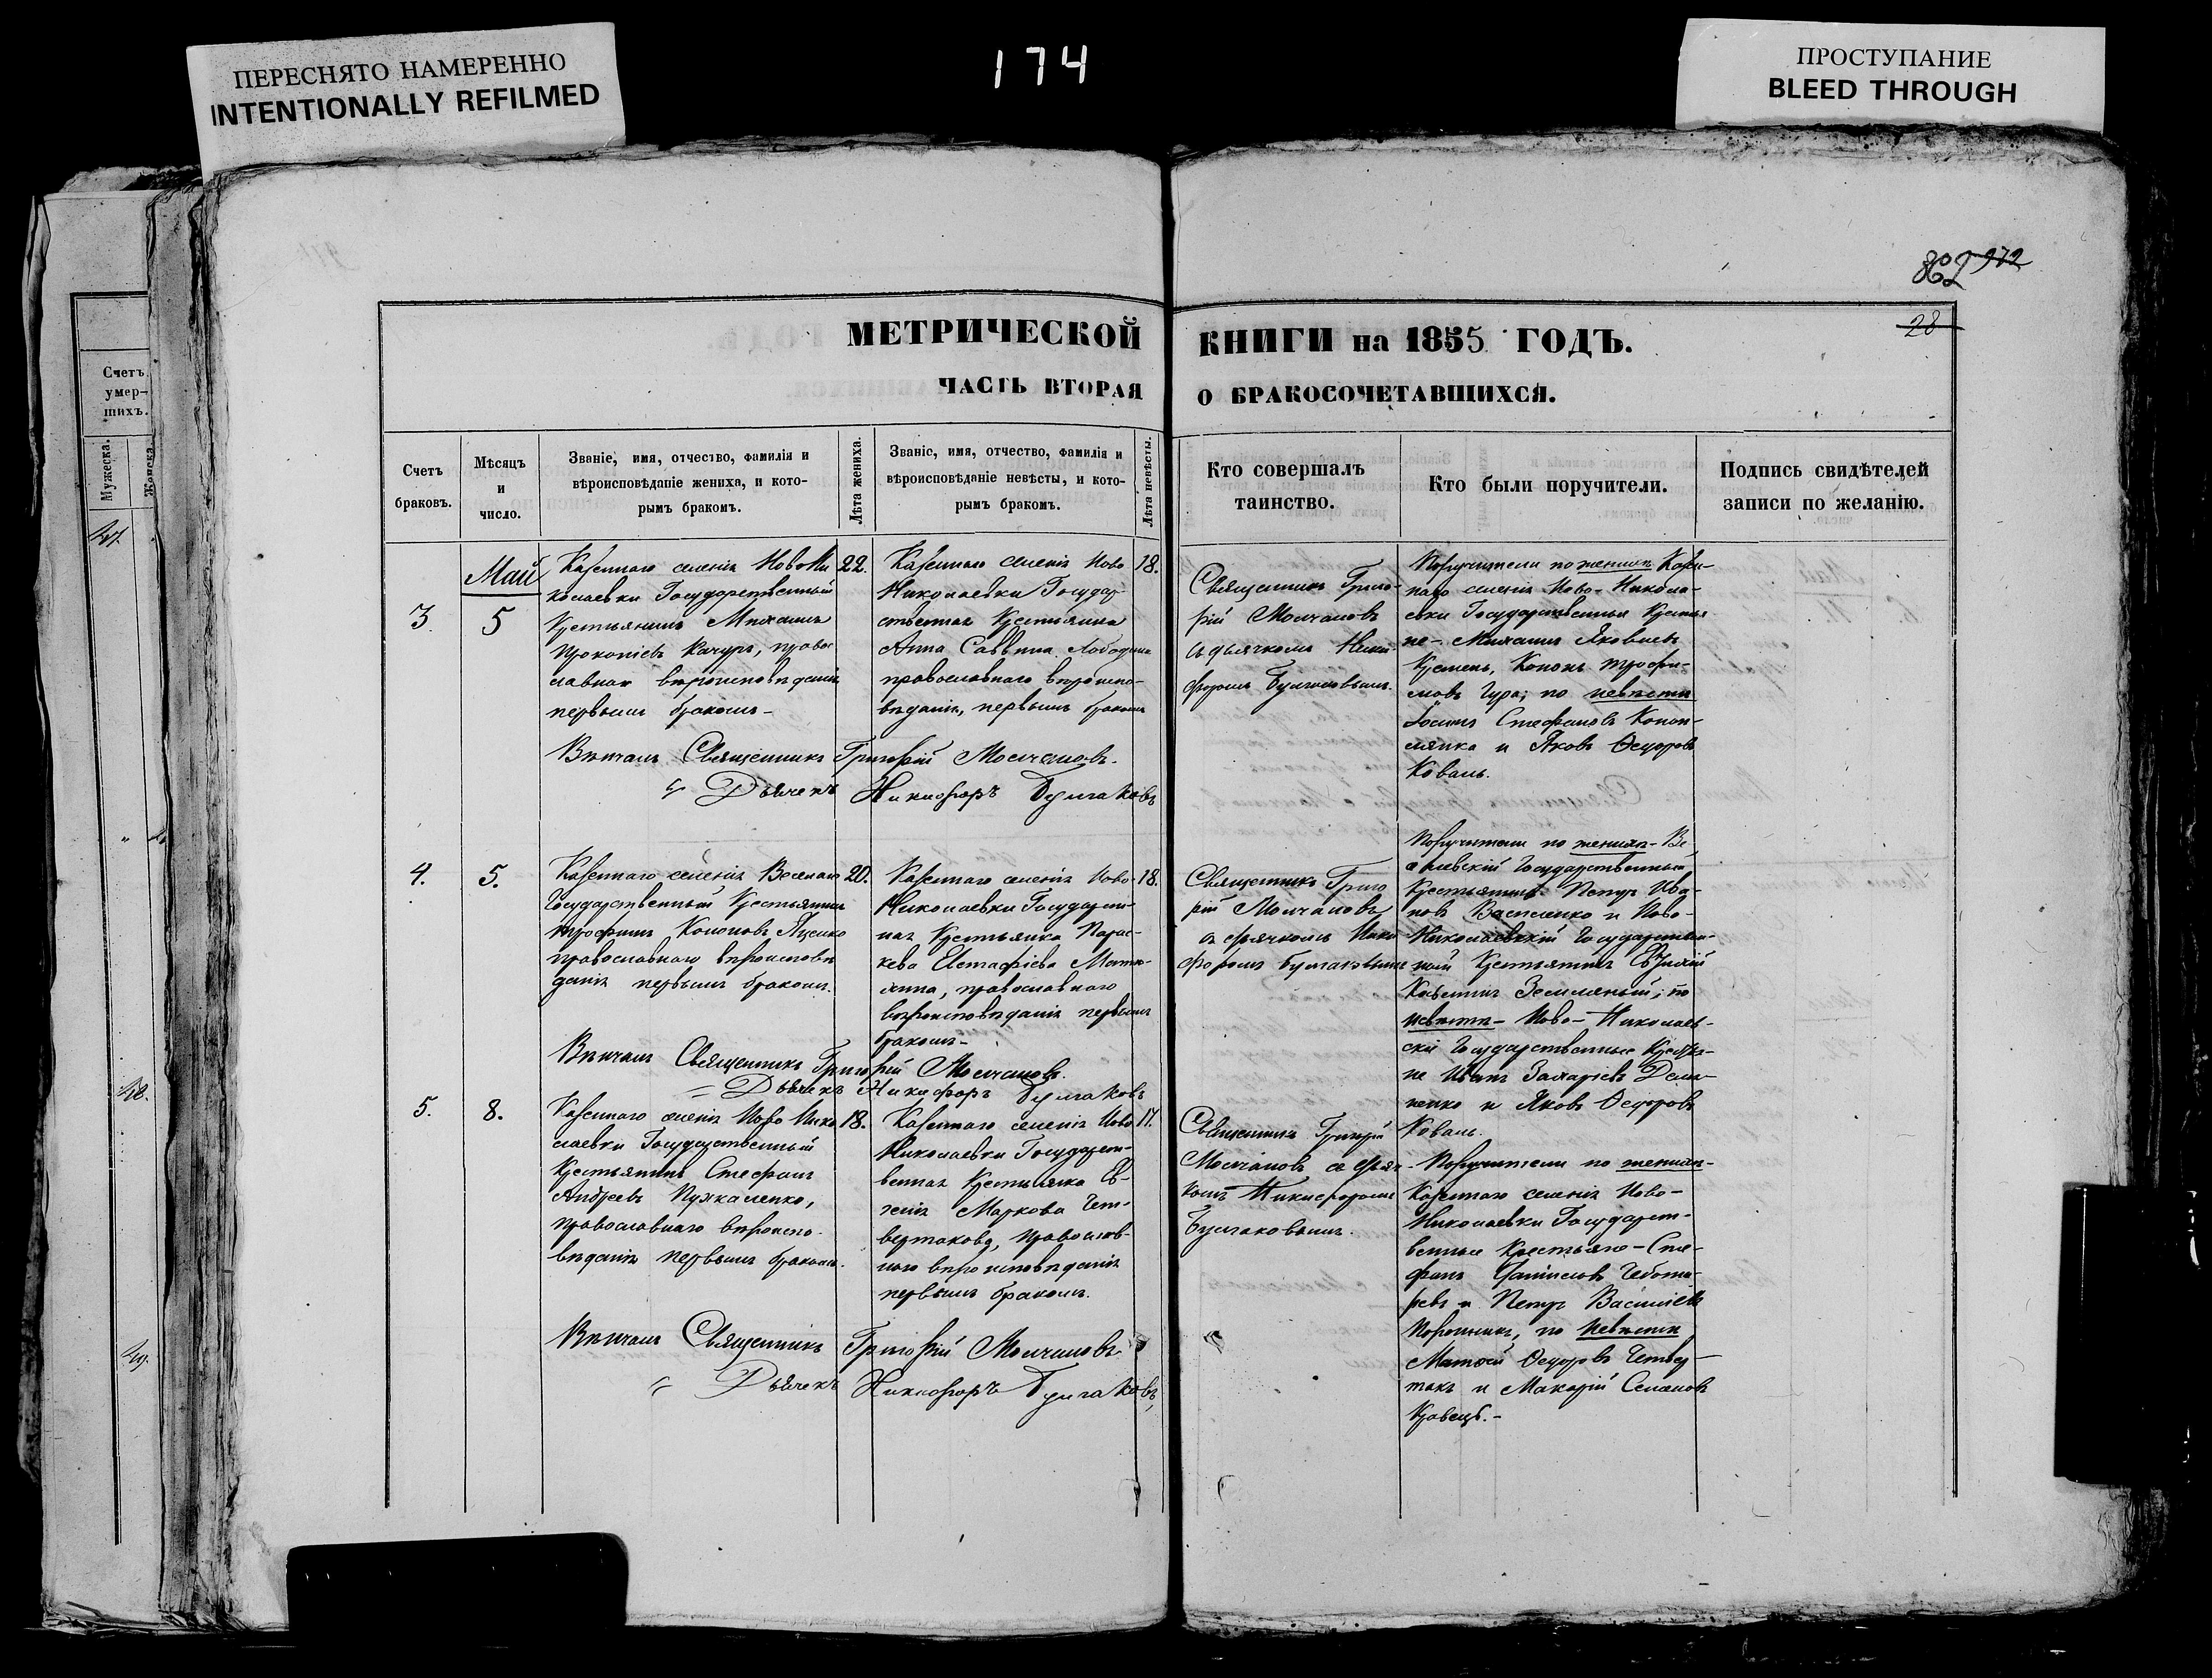 ПЕРЕСНЯТО НАМЕРЕННО
INTENTIONALLY REFILMED
174
ПРОСТУПАНИЕ
BLEED THROUGH
972
28
МЕТРИЧЕСКОЙ КНИГИ на 1855 ГОДЪ.
ЧАСТЬ ВТОРАЯ О БРАКОСОЧЕТАВШИХСЯ.
Счетъ
умер-
шихъ.
Мужеска.
Женска.
Счетъ
браковъ.
Мѣсяцъ
и
число.
Званіе, имя, отчество, фамилія и
вѣроисповѣданіе жениха, и кото-
рымъ бракомъ.
Лѣта жениха.
Званіе, имя, отчество, фамилія и
вѣроисповѣданіе невѣсты, и кото-
рымъ бракомъ.
Лѣта невѣсты.
Кто совершалъ
таинство.
Кто были поручители.
Подпись свидѣтелей
записи по желанію.
3
Май
5
Казеннаго селенія Ново Ни
колаевки Государственный
Крестьянинъ Михаилъ
Прокопіевъ Качуръ, право
славнаго вѣроисповѣданія
первымъ бракомъ-
22.
Казеннаго селенія Ново
Николаевки Государ
ственная Крестьянка
Анна Саввина Лободина
православнаго вѣроиспо-
вѣданія, первымъ бракомъ
18.
Священникъ Григо-
рій Молчановъ
съ дьячкомъ Ники-
форомъ Булгаковымъ.
Поручители по женихѣ Казен-
наго селенія Ново-Никола-
евки Государственные Крестья
не- Михаилъ Яковлевъ
Кремень, Кононъ Трофи-
мовъ Гура; по невѣстѣ
Іосифъ Стефановъ Конон-
и Яковъ Ѳедоровъ
Коваль.
Вѣнчалъ Священникъ Григорій Молчановъ.
Дьячекъ Никифоръ Булгаковъ
4.
5.
Казеннаго селенія Веселаго
Государственный Крестьянинъ
Трофимъ Кононовъ Яценко
православнаго вѣроисповѣ
данія первымъ бракомъ.
20.
Казеннаго селенія Ново-
Николаевки Государствен-
ная Крестьянка Парас-
кева Евстафіева
православнаго
вѣроисповѣданія первымъ
бракомъ-
18.
Священникъ Григо
рій Молчановъ
съ дьячкомъ Ники
форомъ Булгаковымъ
Поручители по женихѣ- Ве
селевскій Государственный
Крестьянинъ Петръ Ива-
новъ Василенко и Ново-
Николаевскій Государствен-
ный Крестьянинъ
Земляный; по
невѣстѣ- Ново-Николаев-
скіе Государственные Крестья-
не Иванъ Захаріевъ Дем-
ненко и Яковъ Ѳедоровъ
Коваль.
Вѣнчалъ Священникъ Григорій Молчановъ.
Дьячекъ Никифоръ Булгаковъ
5.
8.
Казеннаго селенія Ново Нико
лаевки Государственный
Крестьянинъ Стефанъ
Андреевъ Пужаленко,
православнаго вѣроиспо-
вѣданія первымъ бракомъ.
18.
Казеннаго селенія Ново
Николаевки Государст-
венная Крестьянка Ев-
генія Маркова Чет-
вертакова, православ-
наго вѣроисповѣданія
первымъ бракомъ.
17.
Священникъ Григорій
Молчановъ съ дьяч-
комъ Никифоромъ
Булгаковымъ.
Поручители по женихѣ-
Казеннаго селенія Ново-
Николаевки Государст-
венные Крестьяне-Сте-
фанъ Даніиловъ Чебота-
ревъ и Петръ Василіевъ
по невѣстѣ
Матвѣй Ѳедоровъ Четвер-
такъ и Макарій Семеновъ
Кравецъ.-
Вѣнчалъ Священникъ Григорій Молчановъ
Дьячекъ Никифоръ Булгаковъ,